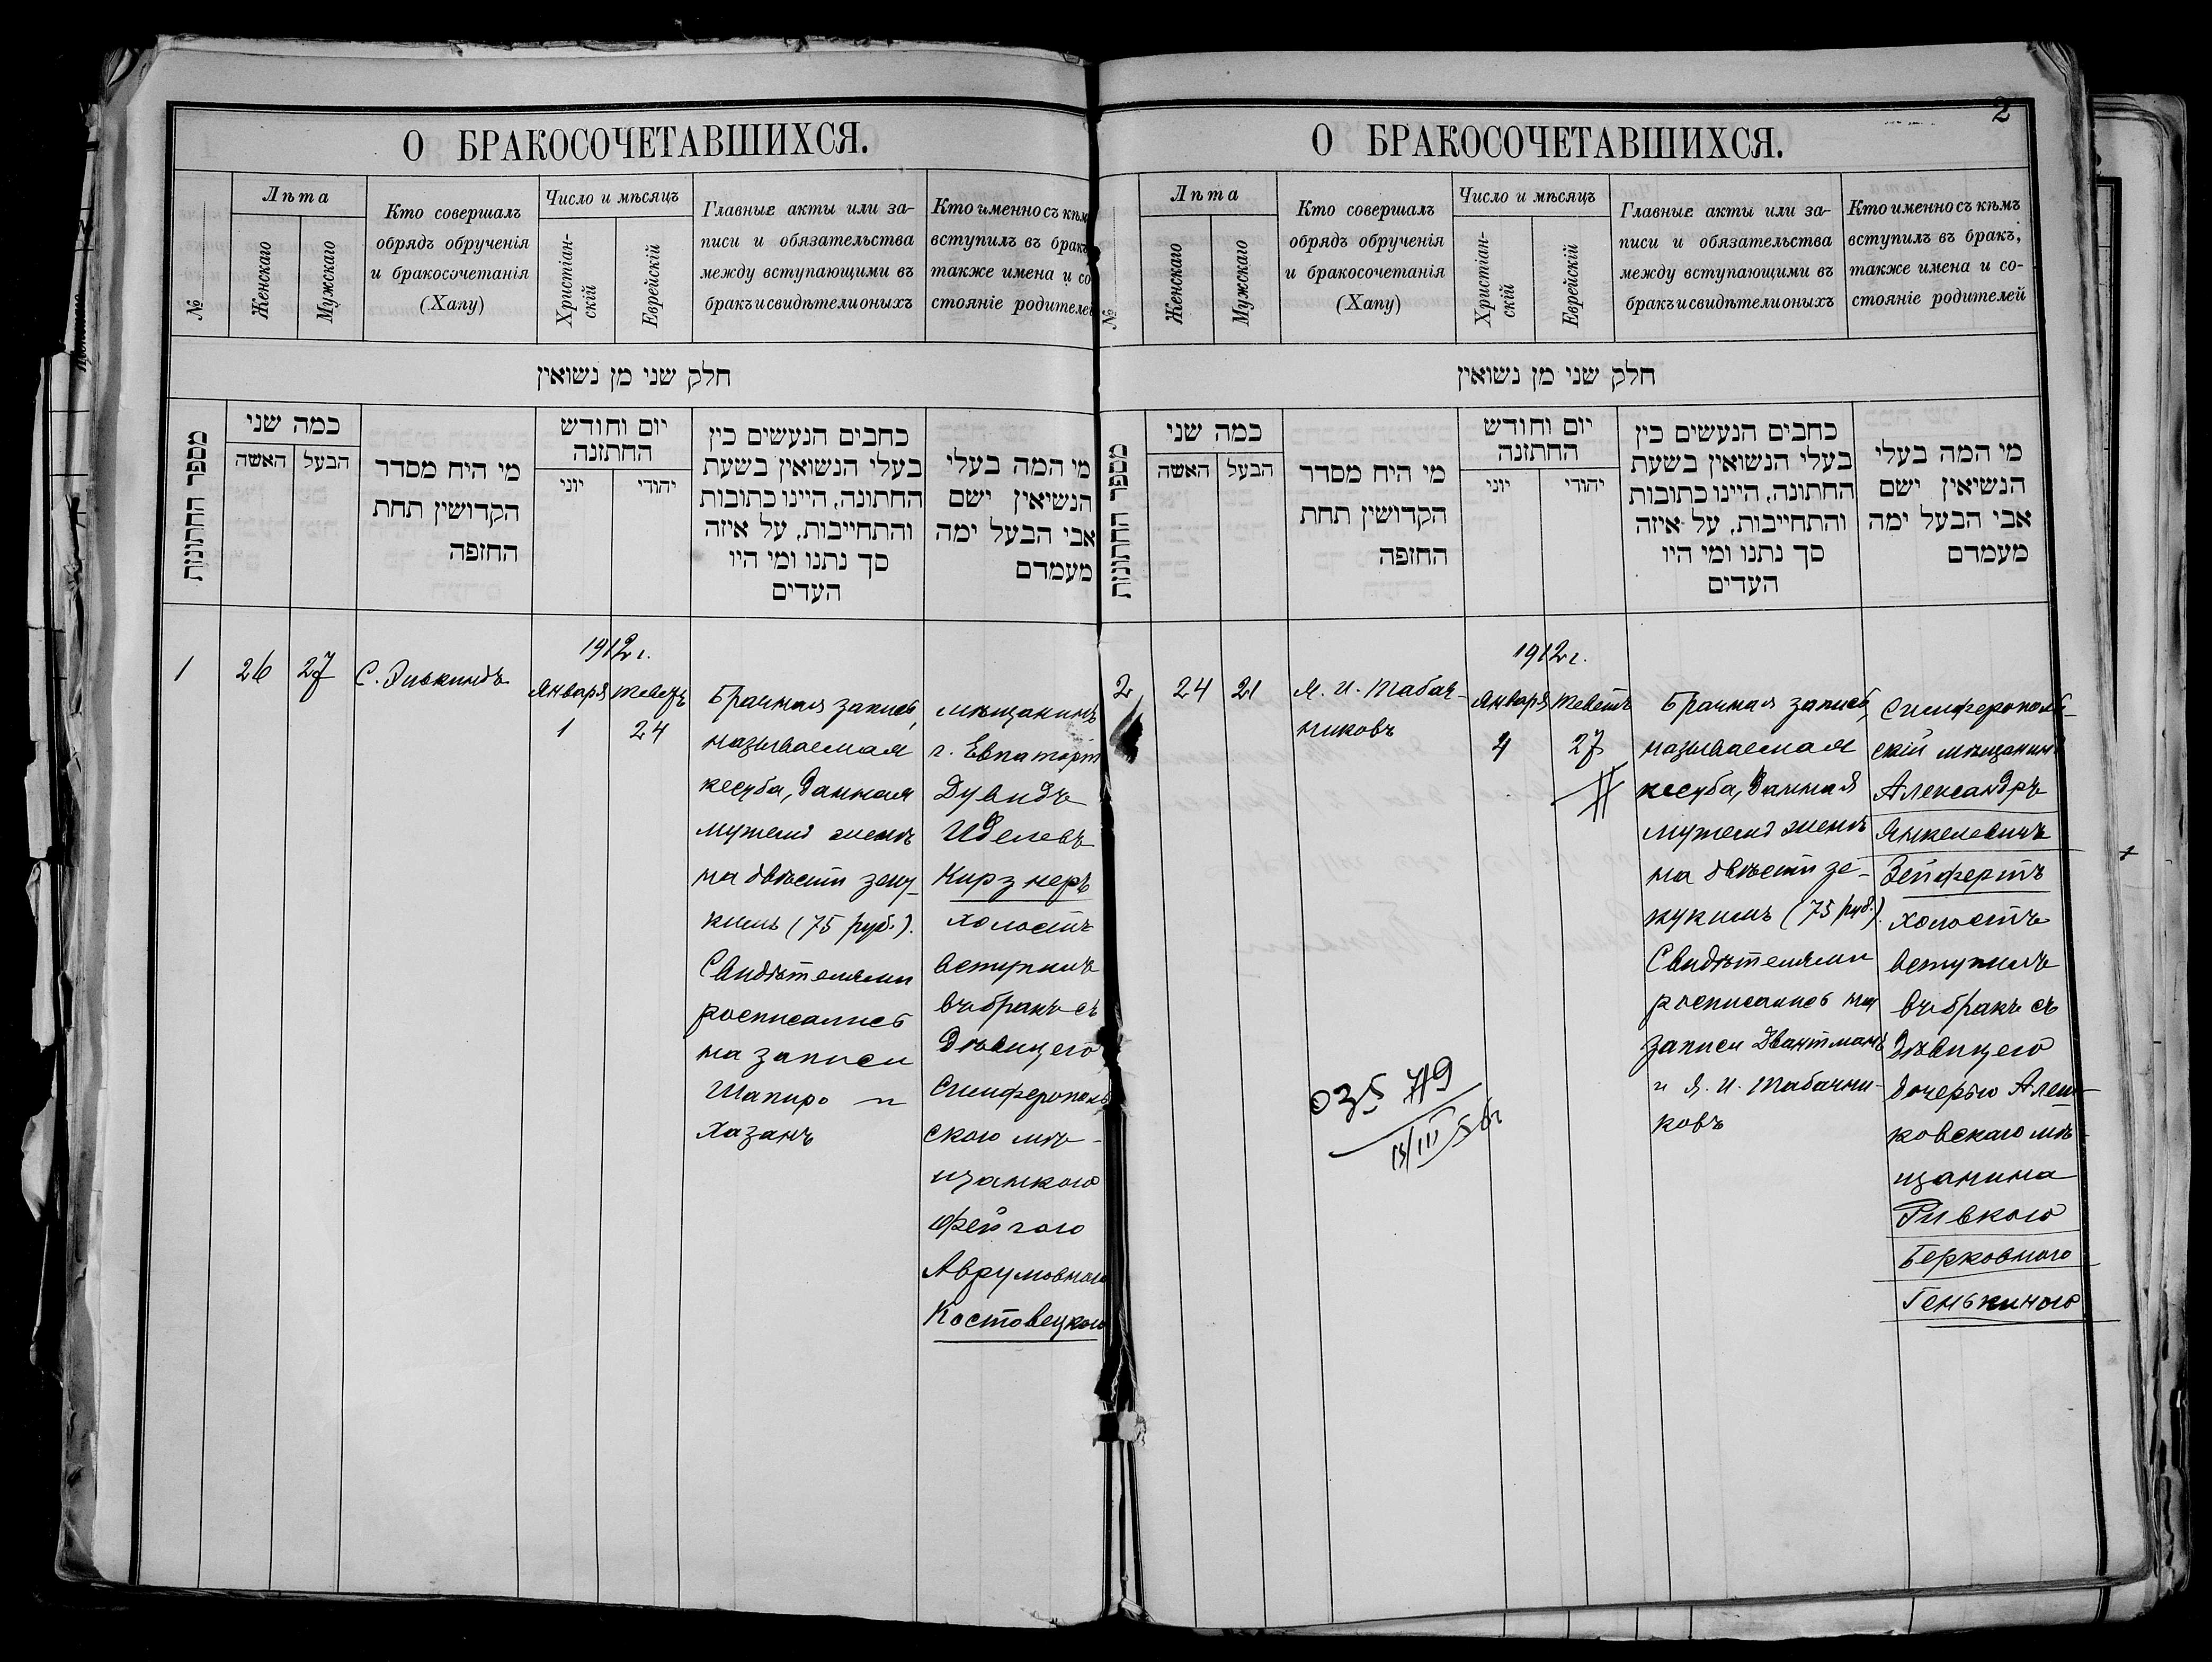 О БРАКОСОЧЕТАВШИХСЯ.
№
Лѣта
Женскаго
Мужскаго
Кто совершалъ
обрядъ обрученія
и бракосочетанія
(Хапу)
Число и мѣсяцъ
Христіан-
скій
Еврейскій
Главные акты или за-
писи и обязательства
между вступающими въ
бракъ и свидѣтели оныхъ
Кто именно съ кѣм
вступилъ въ бракъ
также имена и со
стояніе родителей
חלק שני מן נשואין
מספר החתונות
כמה שני
האשה
הבעל
מי היח מסדר
הקדושין תחת
החזפה
יום וחודש
החתזנה
יוני
יהודי
כחבים הנעשים כין
בעלי הנשואין בשעת
החתונה, היינו כתובות
והתחייבות, על איזה
סך נתנו ומי היו
העדים
מי המה בעלי
הנשיאין ישם
אבי הבעל ימה
מעמדם
1
26
27
С. Элькиндъ
1912 г.
Января Теветъ
1 24
Брачная запись,
называемая
кесуба, данная
мужемъ женѣ
на двѣсти зеку-
кимъ (75 руб.).
Свидѣтелями
росписались
на записи
Шапиро и
Хазанъ
мѣщанинъ
г. Евпаторіи
Дувидъ
Иделевъ
Кирзнеръ
холостъ
вступилъ
въ бракъ съ
дѣвицею
Симферополь
скою мѣ-
щанкою
Фейгою
Аврумовною
Костовецкою
2
О БРАКОСОЧЕТАВШИХСЯ.
№
Лѣта
Женскаго
Мужскаго
Кто совершалъ
обрядъ обрученія
и бракосочетанія
(Хапу)
Число и мѣсяцъ
Христіан-
скій
Еврейскій
Главные акты или за-
писи и обязательства
между вступающими въ
бракъ и свидѣтели оныхъ
Кто именно съ кѣмъ
вступилъ въ бракъ,
также имена и со-
стояніе родителей
חלק שני מן נשואין
מספר החתונות
כמה שני
האשה
הבעל
מי היח מסדר
הקדושין תחת
החזפה
יום וחודש
החתזנה
יוני
יהודי
כחבים הנעשים כין
בעלי הנשואין בשעת
החתונה, היינו כתובות
והתחייבות, על איזה
סך נתנו ומי היו
העדים
מי המה בעלי
הנשיאין ישם
אבי הבעל ימה
מעמדם
2
24
21
Я. И. Табач-
никовъ
1912 г.
Января Теветъ
4 27
Брачная запись,
называемая
кесуба, данная
мужемъ женѣ
на двѣсти зе-
кукимъ (75 руб.).
Свидѣтелями
росписались на
записи Двантманъ
и Я. И. Табачни-
ковъ
Симферополь-
скій мѣщанинъ
Александръ
Янкелевичъ
Зейфертъ
холостъ
вступилъ
въ бракъ съ
дѣвицею
дочерью Алеш-
ковскаго мѣ-
щанина
Ривкою
Берковною
Генькиною